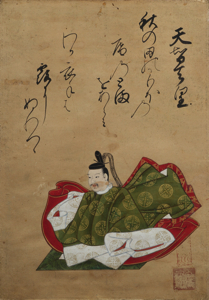 天智天皇
秋の田のかりほの
庵のとま
をあらみ
わか衣手は
露に
ぬれつつ